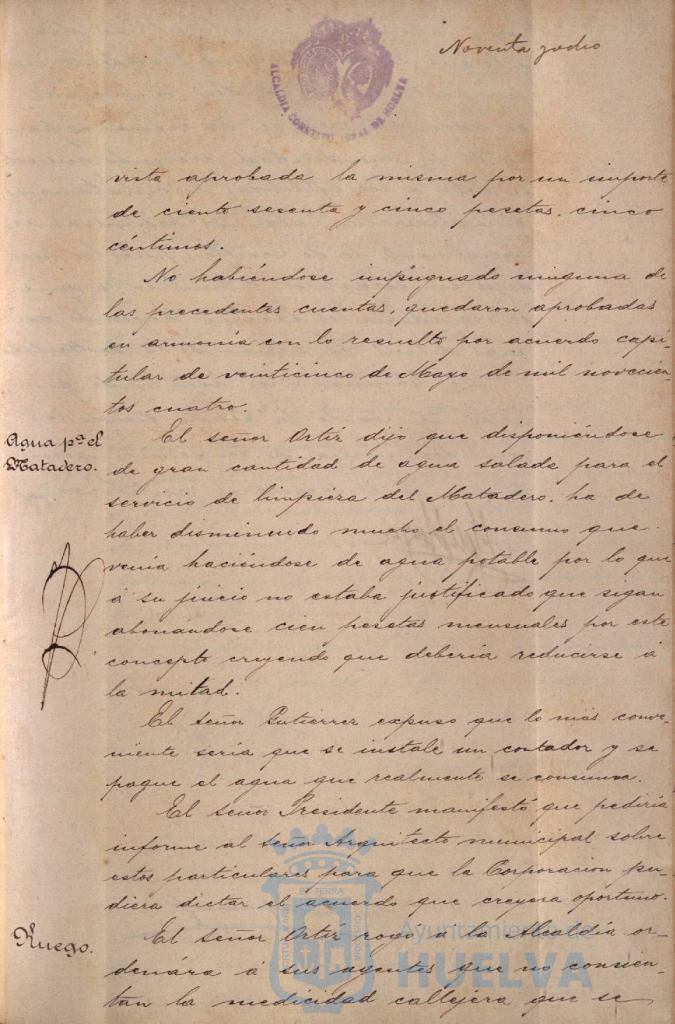 Noventa y ocho
ALCALDIA CONSTITUCIONAL DE HUELVA
vista aprobada la misma por un importe
de ciento sesenta y cinco pesetas, cinco
céntimos.
No habiéndose impugnado ninguna de
las precedentes cuentas, quedaron aprobadas
en armonía con lo resuelto por acuerdo capi-
tular de veinticinco de Mayo de mil novecien-
tos cuatro.
Agua pª el
Matadero.
El señor Ortiz dijo que disponiéndose
de gran cantidad de agua salada para el
servicio de limpieza del Matadero, ha de
haber disminuido mucho el consumo que
venía haciéndose de agua potable por lo que
á su juicio no estaba justificado que sigan
abonándose cien pesetas mensuales por este
concepto creyendo que debería reducirse á
la mitad.
El señor Gutierrez expuso que lo más conve-
niente sería que se instale un contador y se
pague el agua que realmente se consuma.
El señor Presidente manifestó que pediría
informe al señor Arquitecto municipal sobre
estos particulares para que la Corporacion pu-
diera dictar el acuerdo que creyera oportuno.
Ruego.
El señor Ortiz rogó a la Alcaldía or-
denára á sus agentes que no consien-
tan la medicidad callejera que se
Ayuntamiento
HUELVA